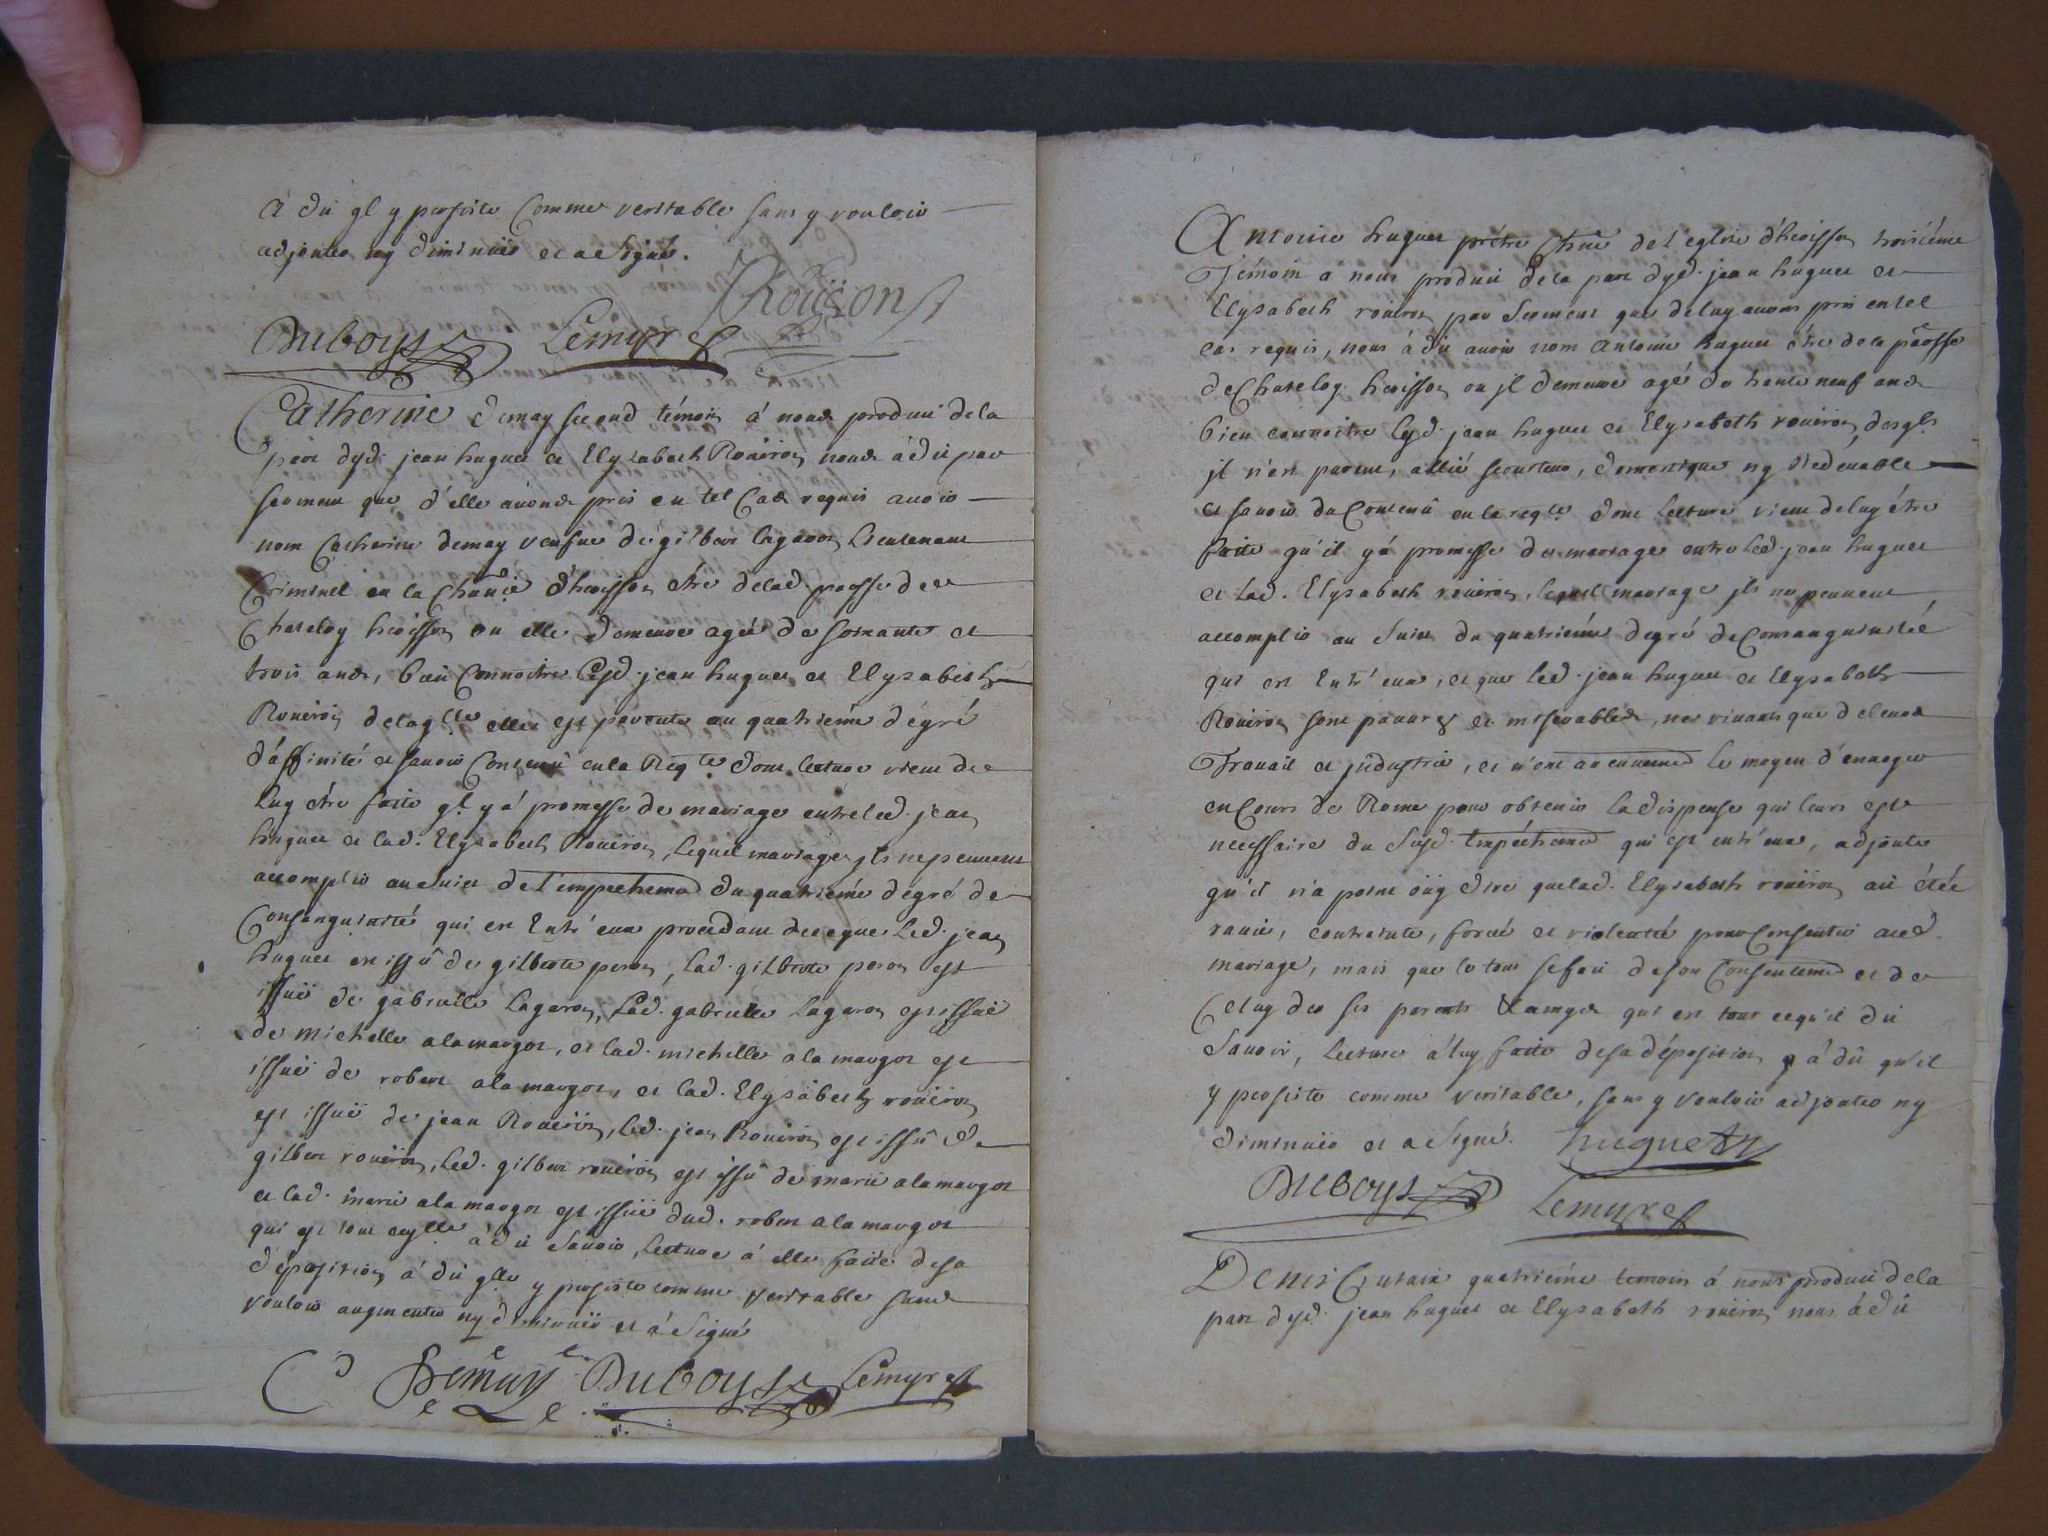 à dit ql y persiste Comme veritable sans y vouloir
adjouter ny diminuer et a signé.
Rouson
Duboys Lemyre
Catherine demay second témoin à nous produit de la
part dysd. jean huguet et Elysabeth Roueron nous à dit par
serment que d'elle avons pris en tel Cas requis avoir
nom Catherine demay veufve de gilbert lagaron Lieutenant
Criminel en la Chanie d'herisson être de lad. paosse de
Chateloy herisson ou elle demeure agée de soixante et
trois ans, bien Connoitre Lesd. jean huguet et Elysabeth
Roueron de laqlle elle est parente au quatriéme dégré
d'affinité et savoir Contenu en la Reqte dont lecture vient de
luy être faite ql y a promesse de mariage entre led. jean
huguet et lad. Elysabeth Roueron, lequel mariage ils ne peuvent
accomplir au suiet de l'empechemt du quatriéme dégré de
Consanguinité qui est Entr'eux procedant de ce que Led. jean
huguet est issû de gilberte peron, lad. gilberte peron est
issuë de gabrielle Lagaron, Lad. gabrielle Lagaron est issuë
de michelle alamargot, et lad. michelle alamargot est
issuë de robert alamargot, et lad. Elysabeth roueron
est issuë de jean Roueron, Led. jean Roueron est issû de
gilbert roueron, Led. gilbert roueron est issû de marie alamargot
et lad. marie alamargot est issuë dud. robert alamargot
qui est tout ceqlle à dit savoir, lecture à elle faite de sa
déposition à dit qlle y persiste comme veritable sans
vouloir augmenter ny diminuer et à signé
C Demay Duboys Lemyre
Antoine huguet prêtre Chne de l'eglise d'herisson troisiéme
Témoin à nous produit de la part dysd. jean huguet et
Elysabeth roueron par serment que de luy avons pris en tel
cas requis, nous à dit avoir nom antoine huguet être de la paosse
de Chateloy herisson ou jl demeure agé de trente neuf ans
bien connoitre lesd. jean huguet et Elysabeth roueron, desqls
jl n'est parent, allié serviteur, domestique ny Redevable
et savoir du Contenû en la reqte dont Lecture vient de luy être
faite qu'il y à promesse de mariage entre Led. jean huguet
et Lad. Elysabeth roueron, lequel mariage jls ne peuvent
accomplir au suiet du quatriéme dégré de Consanguinité
qui est Entr'eux, et que led. jean huguet et Elysabeth
Roueron sont pauvres et miserables, ne vivants que de leurs
Travail et jndustrie, et n'ont aucunemt le moyen d'envoyer
en Cours de Rome pour obtenir la dispense qui leurs est
necessaire du susd. Empéchemt qui est entr'eux, adjoute
qu'il n'a point oüy dire que lad. Elysabeth roueron ait étée
ravie, contrainte, forcée et violentée pour Consentir aud.
mariage, mais que le tout se fait de son Consentemt et de
Celuy de ses parents & amys qui est tout cequ'il dit
savoir, lecture à luy faite de sa déposition à dit qu'il
y persiste comme veritable, sans y vouloir adjouter ny
diminuer et a signé. huguet
Duboys Lemyre
Denis quatriéme temoin à nous produit de la
part dysd. jean huguet et Elysabeth roueron nous à dit